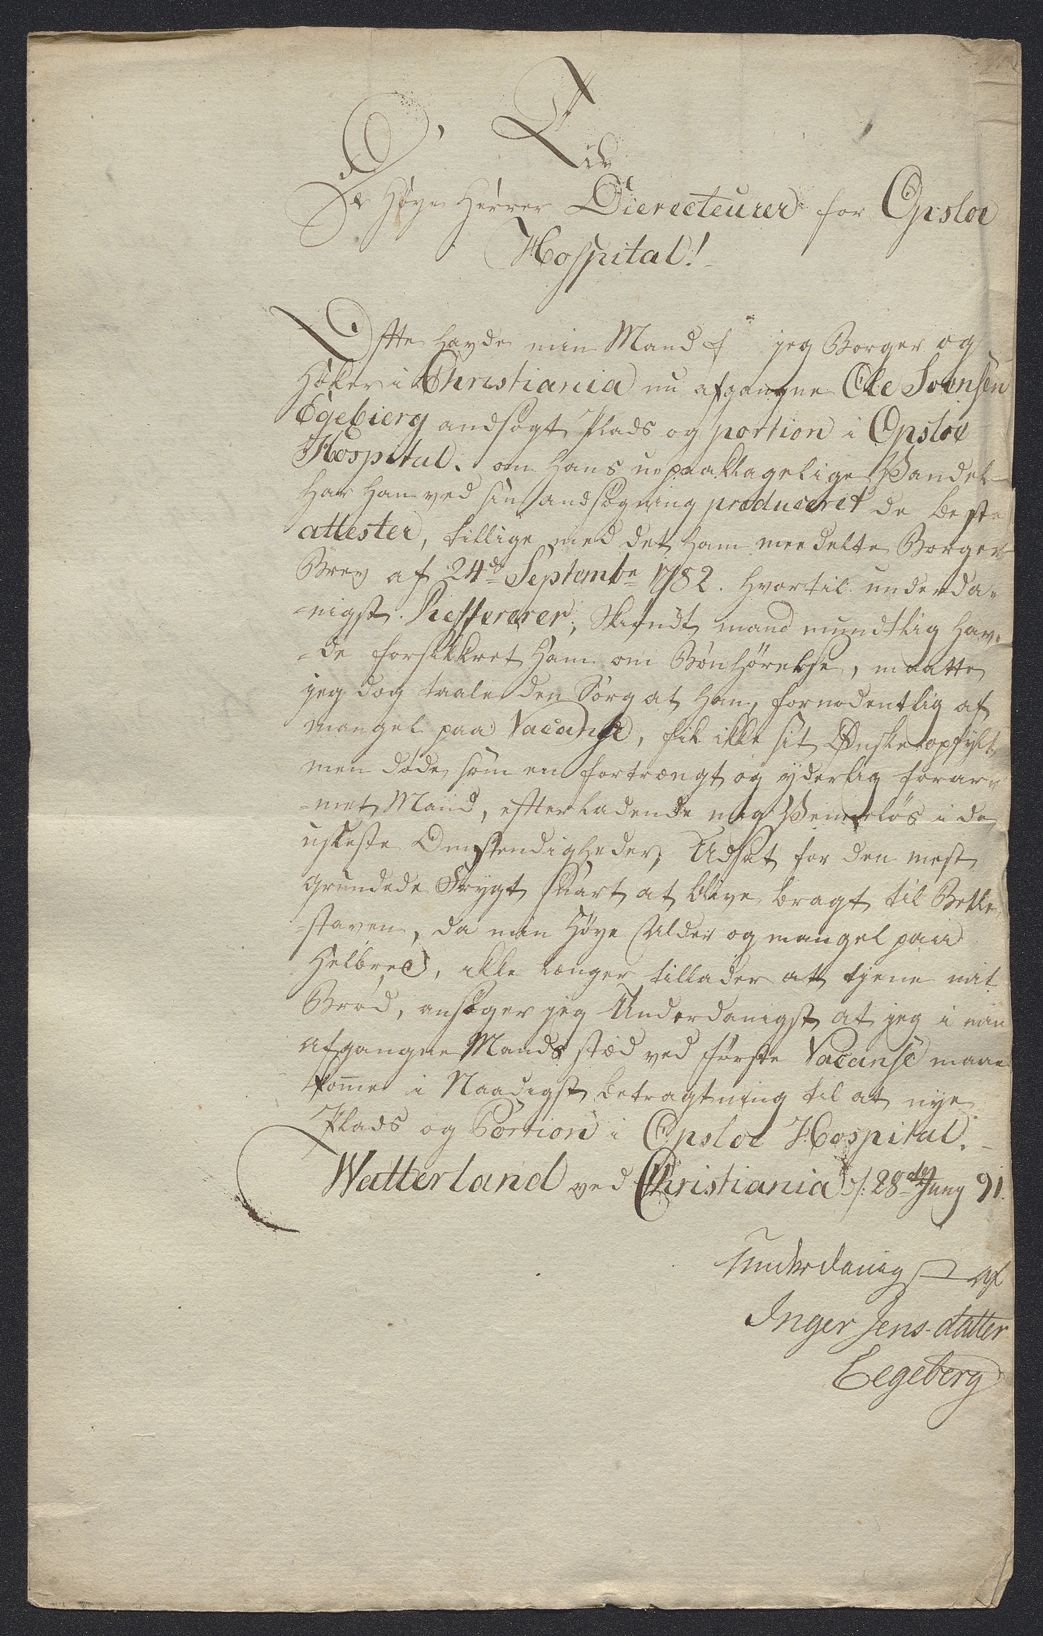 Til
De Høye Herrer Dierecteurer for Opsloe
Hospital!
Ofte havde min Mand jeg Borger og
Høker i Christiania nu afgangne Ole Svensen
Egebierg andsøgt Plads og portion i Opsloe
Hospital. om hans uepaaklagelige Vandel
har han ved sin andsøgning produceret de beste
attester, tillige med det ham meedelte Borger
Brev af 24de Septembr 1782. hvortil underda-
-nigst Refferérer; Skiøndt mand mundtlig hav-
-de forsikkret ham om Bønhørelse, maatte
jeg dog taale den Sorg at han, fornodentlig af
mangel paa Vacance, fik ikke sit Ønske opfylt
men døde som en fortrængt og yderlig forar-
-met Mand, efterladende mig Vennerløs i de
usleste Omstendigheder, Udsat for den mest
grundede Frygt snart at blive bragt til Betle-
-staven, da min høye Alder og mangel paa
Helbred, ikke længer tillader att tjene mit
Brød, ansøger jeg Underdanigst at jeg i min
afgangne Mands stæd ved første Vacanse maae
komme i Naadigst betragtning til at nye
Plads og Portion i Opsloe Hospital.-
Watterland ved Christiania d: 28de Juny 91.
Underdanigst af
Inger Jens-datter
Eegeberg